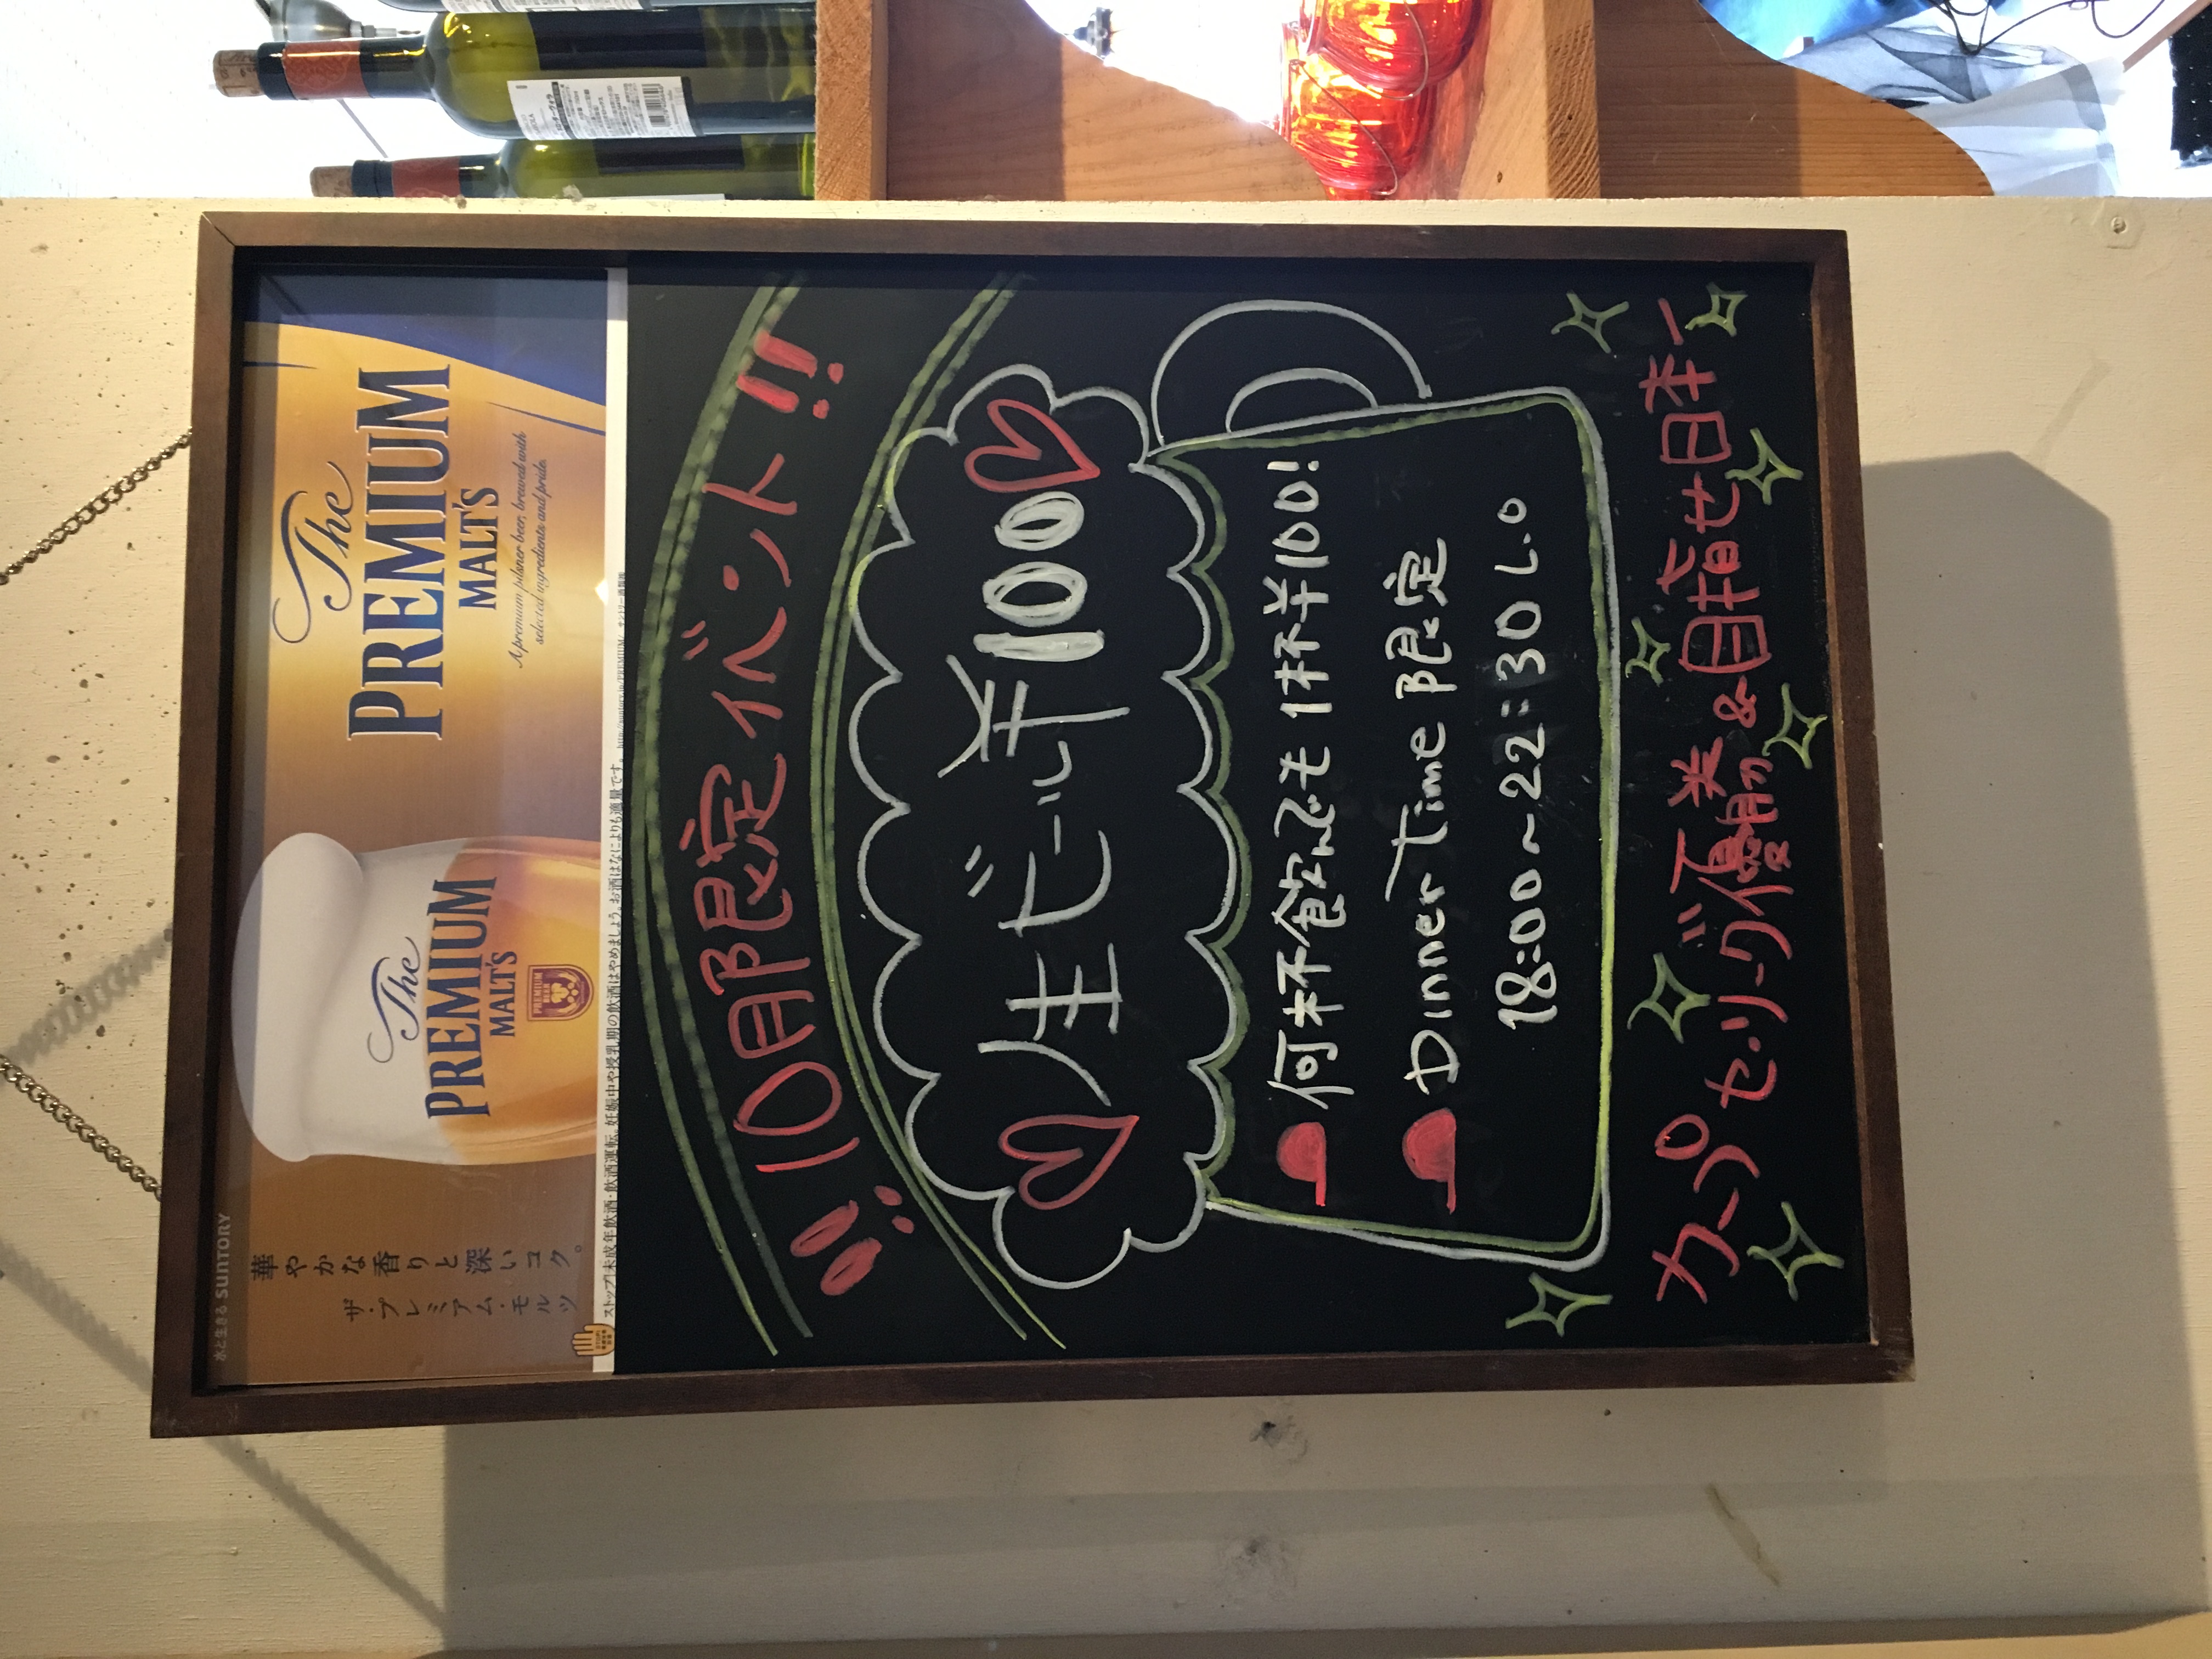 水と生きる SUNTORY
華やかな香りと深いコク。
ザ・プレミアム・モルツ
The
PREMIUM
MALT'S
PREMIUM
BEER
The
PREMIUM
MALT'S
A premium pilsner beer, brewed with
selected ingredients and pride.
ストップ!未成年飲酒・飲酒運転。妊娠中や授乳期の飲酒はやめましょう。お酒はなによりも適量です。
!!10月限定イベント!!
生ビール ¥100
何杯飲んでも1杯¥100!
Dinner Time 限定
18:00~22:30 L.O
カープ セ・リーグ優勝 & 目指せ日本一